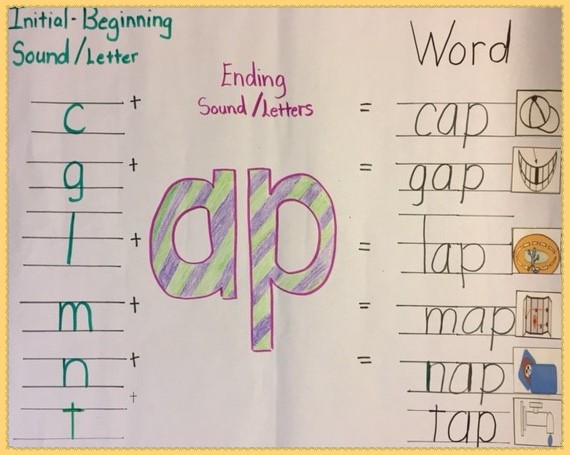 Initial-Beginning
Sound/Letter
Ending
Sound/Letters
Word
c + = cap
g + = gap
ap
l + = lap
m + = map
n + = nap
t + tap